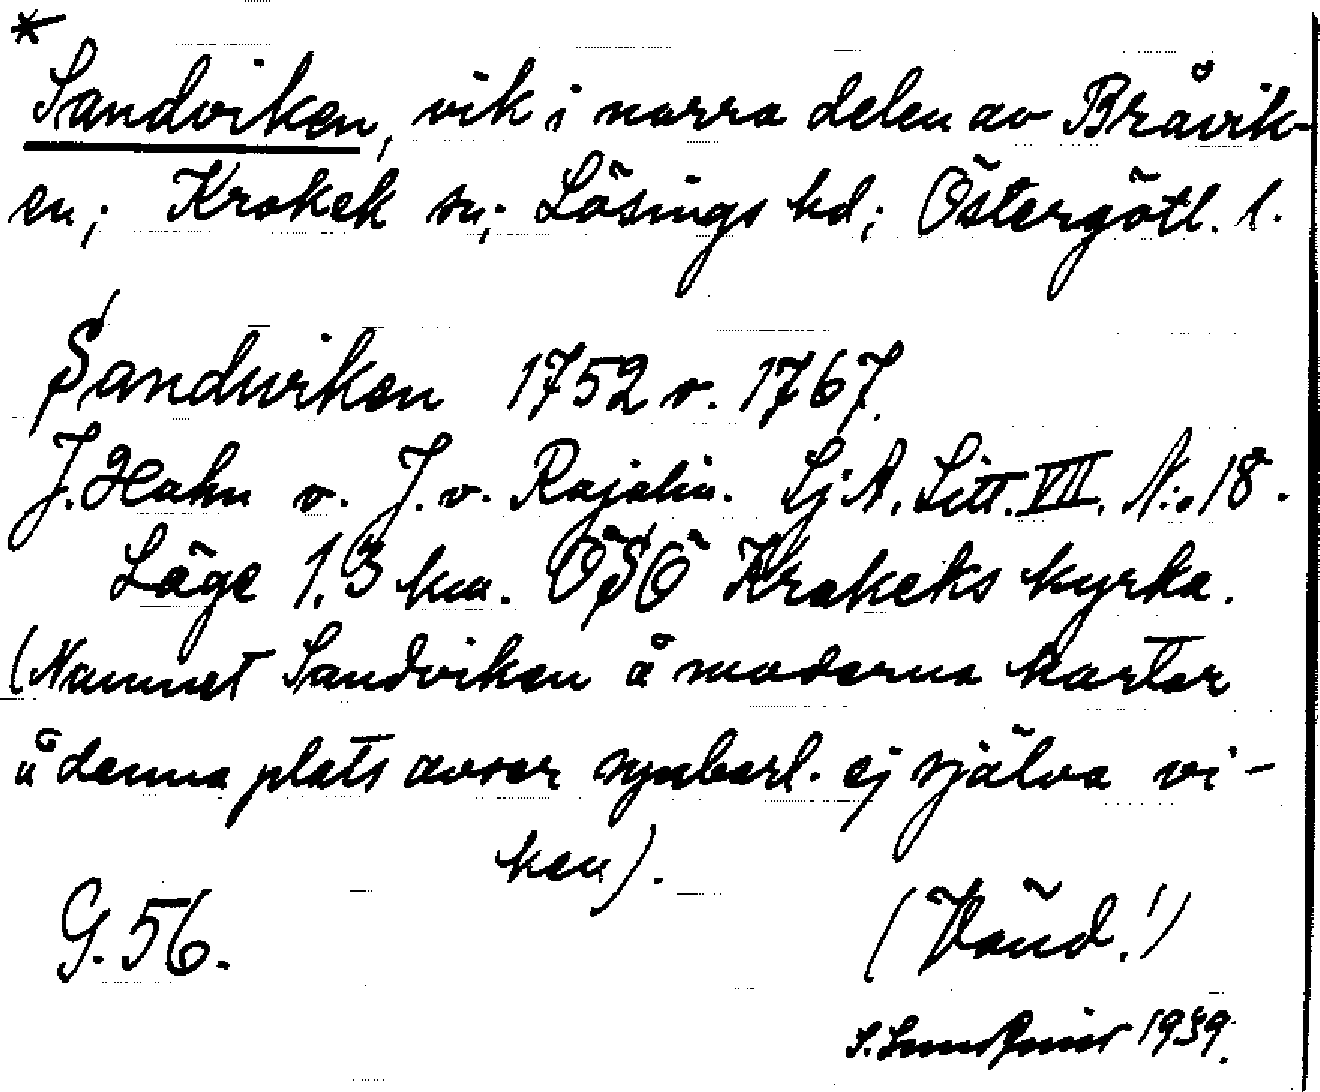 *
Sandviken, vik i norra delen av Bråvik-
en; Krokek sn; Lösings hd; Östergötl. l.
Sandwiken 1752 o. 1767.
J. Hahn o. J. v. Rajalin. SjA. Litt. VII. N:o 18.
Läge 1,3 km. OSO Krokeks kyrka.
(Namnet Sandviken å moderna kartor
å denna plats avser synbarl. ej själva vi-
ken).
G. 56.
(Vänd!)
S. 1939.